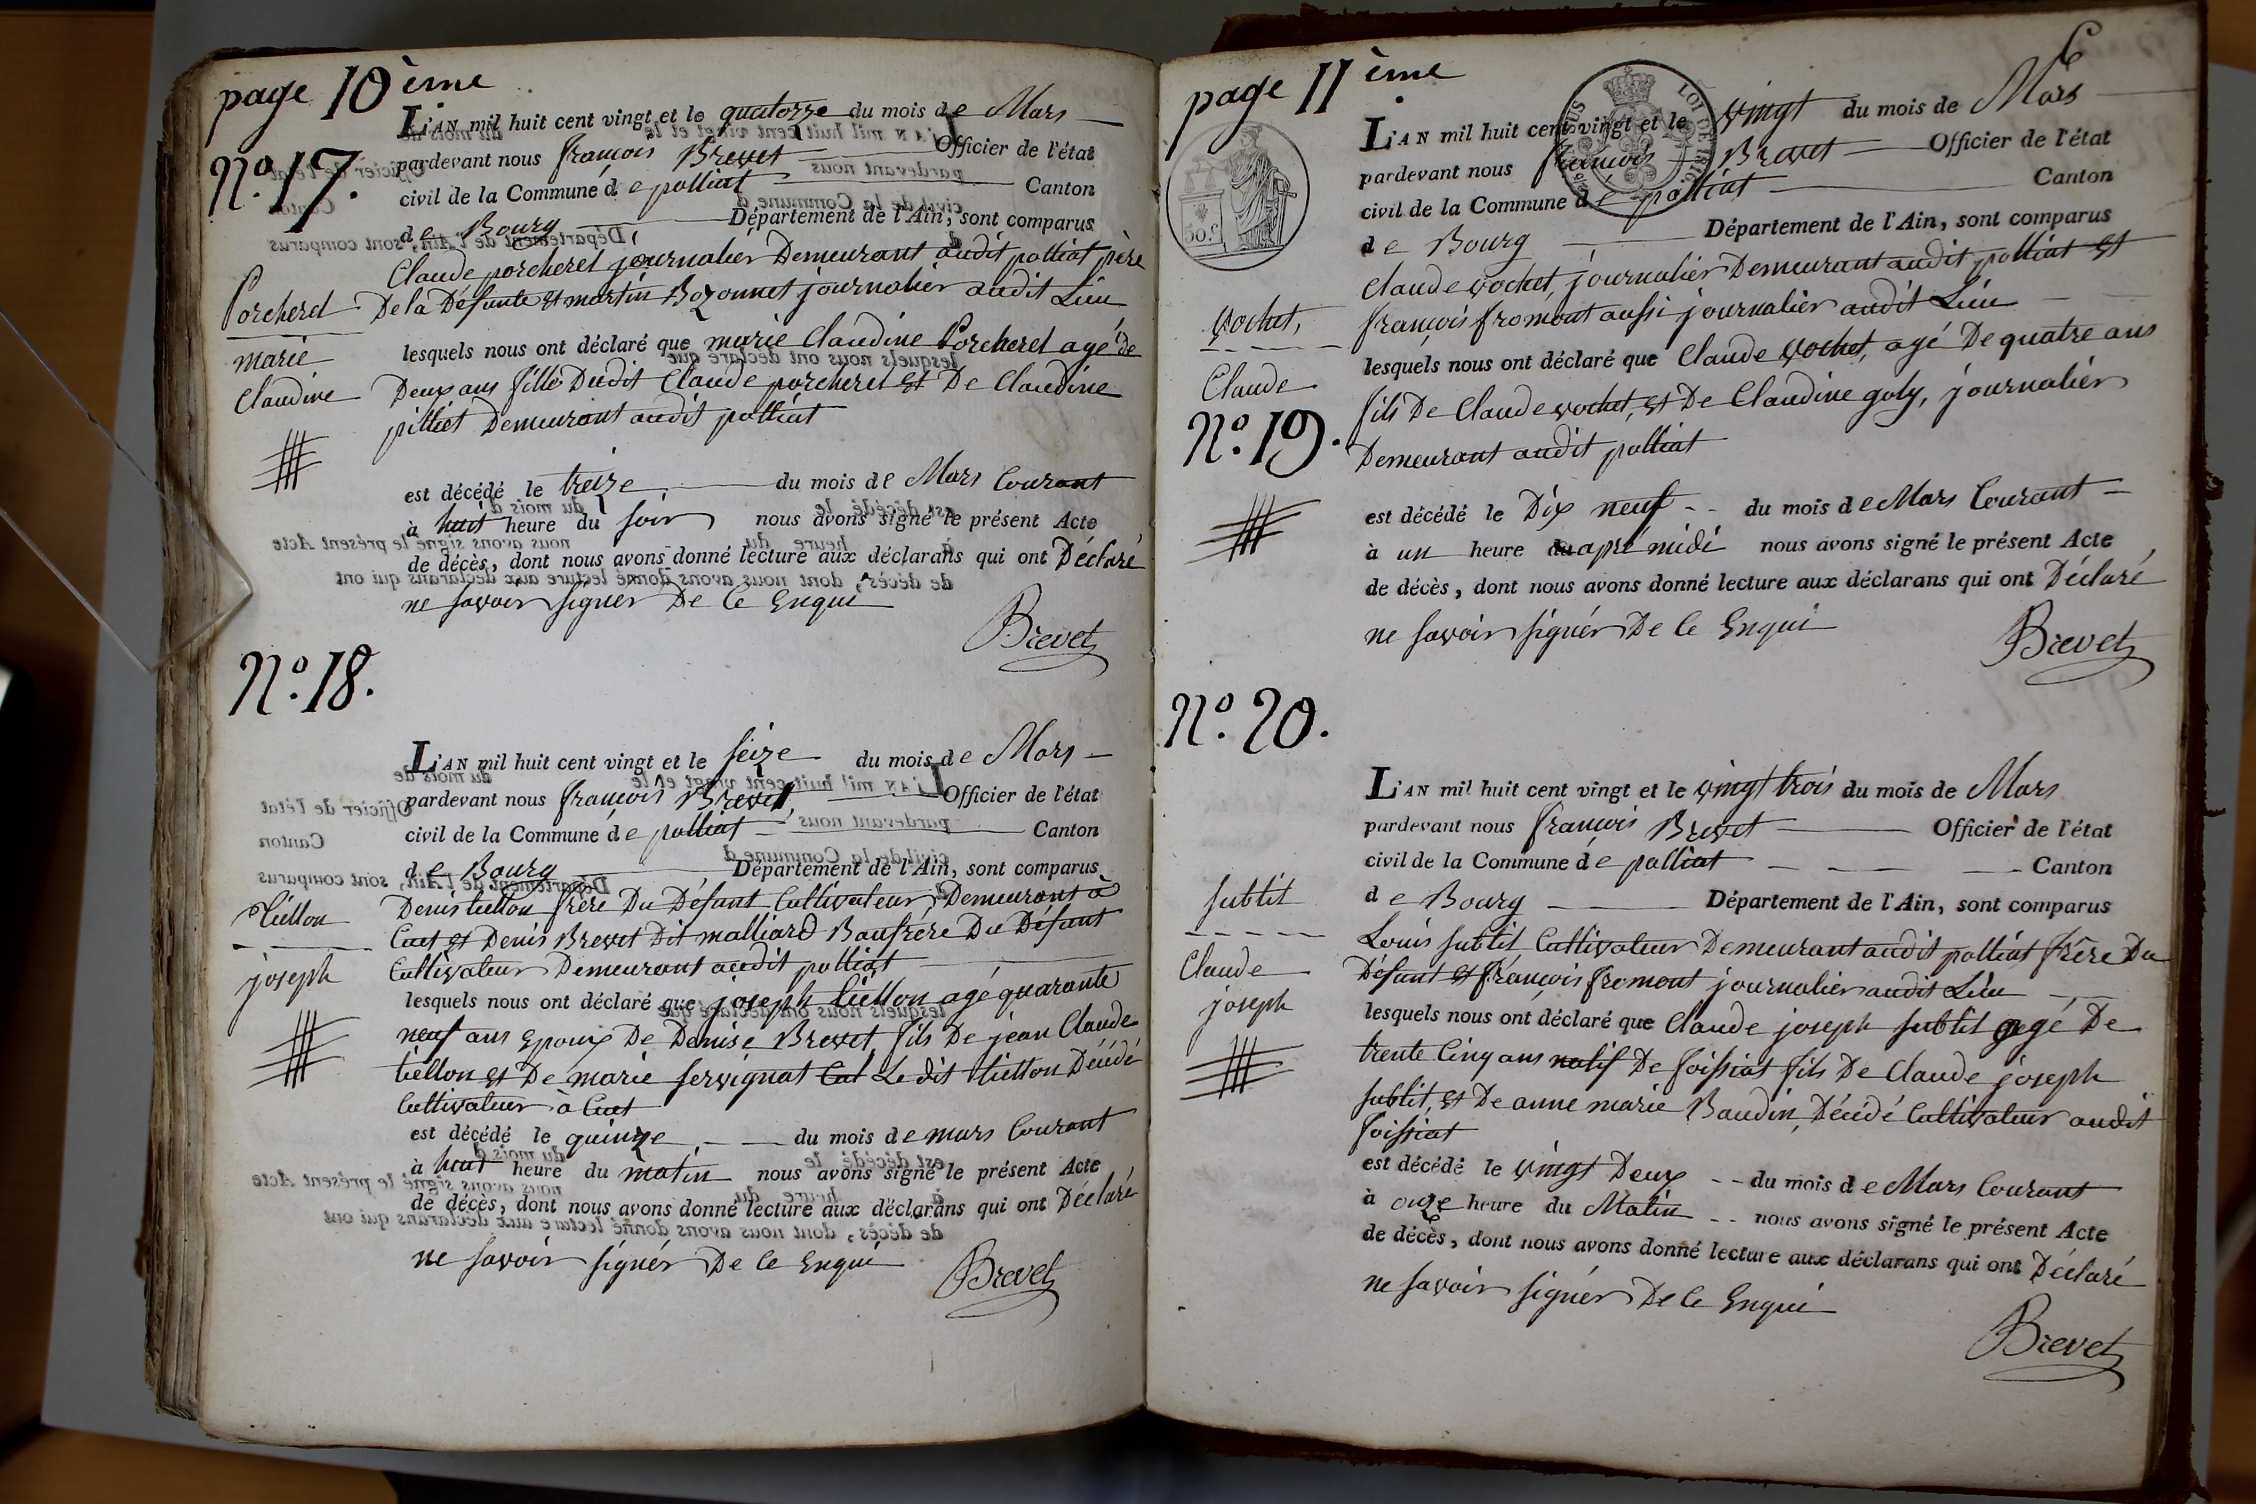 page 10ème
L'AN mil huit cent vingt et le quatorze du mois de Mars
N.º 17.
pardevant nous françois Brevet Officier de l'état
civil de la Commune de polliat Canton
de Bourg Département de l'Ain, sont comparus
Claude porcheret journalier Demeurant audit polliat père
De la Défunte et martin Bozonnet journalier audit Lieu
Porcheret
marie
Claudine
lesquels nous ont déclaré que marie Claudine Porcheret agé de
Deux ans fille Dudit Claude porcheret et De Claudine
pilliet Demeurant audit polliat
est décédé le treize du mois de Mars Courant
à huit heure du soir nous avons signé le présent Acte
de décès, dont nous avons donné lecture aux déclarans qui ont Déclaré
ne savoir signer De Ce Enqui
Brevet
N.º 18.
L'AN mil huit cent vingt et le seize du mois de Mars
pardevant nous françois Brevet Officier de l'état
civil de la Commune de polliat Canton
de Bourg Département de l'Ain, sont comparus
tiellon
joseph
Denis tiellon frère Du Défunt Cultivateur, Demeurant à
Cuet et Denis Brevet Dit malliard Baufrére Du Défunt
Cultivateur Demeurant audit polliat
lesquels nous ont déclaré que joseph tiellon agé quarante
neuf ans Epoux De Denise Brevet fils De jean Claude
tiellon et De marie servignat Le dit tiellon Décédé
Cultivateur à Cuet
est décédé le quinze du mois de mars Courant
à huit heure du matin nous avons signé le présent Acte
de décès, dont nous avons donné lecture aux déclarans qui ont Déclaré
ne savoir signér De Ce Enqui
Brevet
page 11ème
L'AN mil huit cent vingt et le vingt du mois de Mars
pardevant nous françois Brevet Officier de l'état
civil de la Commune de polliat Canton
de Bourg Département de l'Ain, sont comparus
LOI DE
50.c
Claude vochet, journalier Demeurant audit polliat et
françois fromont aussi journalier audit Lieu
vochet,
Claude
N.º 19.
lesquels nous ont déclaré que Claude vochet, agé De quatre ans
fils De Claude vochet, et De Claudine goly, journalier
Demeurant audit polliat
est décédé le Dix neuf du mois de Mars Courant
à un heure apré midi nous avons signé le présent Acte
de décès, dont nous avons donné lecture aux déclarans qui ont Déclaré
ne savoir signér De Ce Enqui
Brevet
N.º 20.
L'AN mil huit cent vingt et le vingt trois du mois de Mars
pardevant nous françois Brevet Officier de l'état
civil de la Commune de polliat Canton
de Bourg Département de l'Ain, sont comparus
sublit
Claude
joseph
Louis sublit Cultivateur Demeurant audit polliat frère Du
Défunt et françois fromont journalier audit Lieu
lesquels nous ont déclaré que Claude joseph sublit agé De
trente Cinq ans natif De foissiat fils De Claude joseph
sublit, et De anne marie Baudin, Décédé Cultivateur audit
foissiat
est décédé le vingt Deux du mois de Mars Courant
à onze heure du Matin nous avons signé le présent Acte
de décès, dont nous avons donné lecture aux déclarans qui ont Déclaré
ne savoir signér De Ce Enqui
Brevet